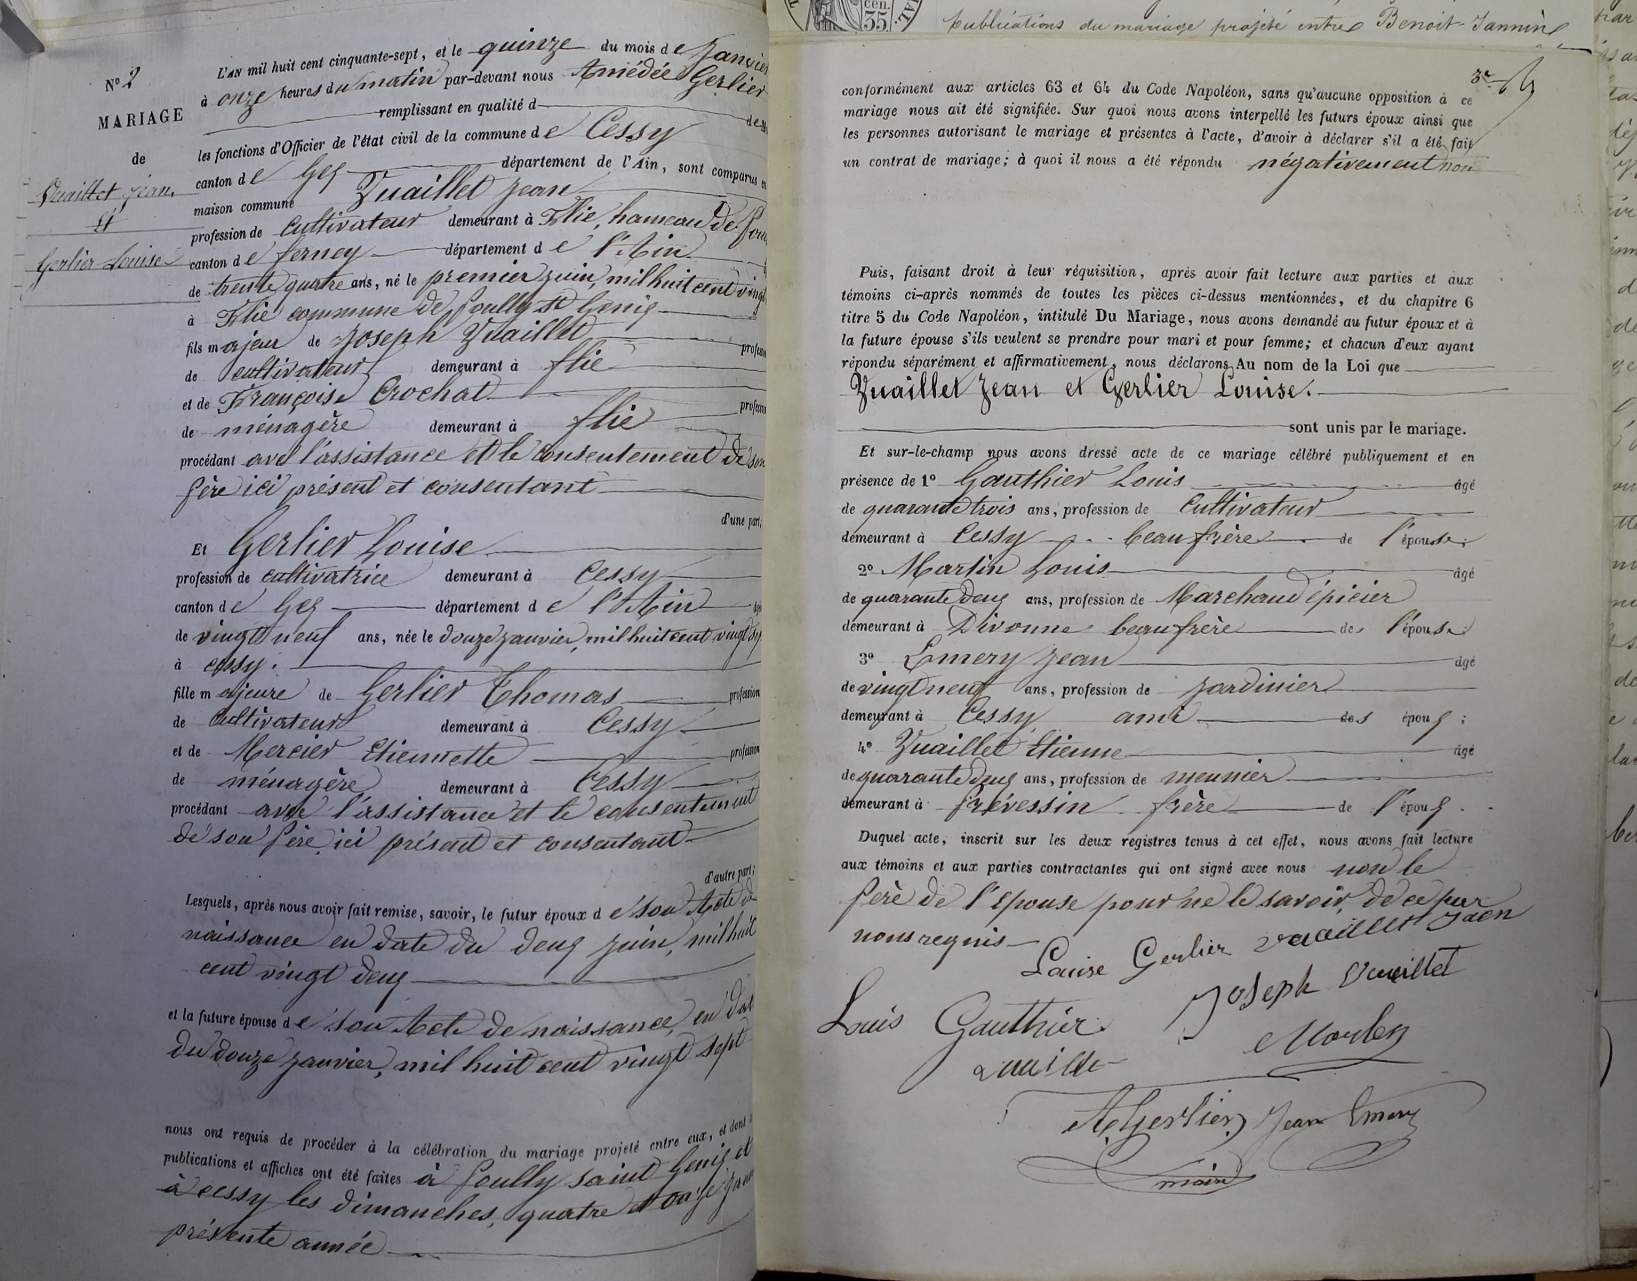 N° 2
MARIAGE
de
Vuaillet Jean
et
Gerlier Louise
L'AN mil huit cent cinquante-sept, et le quinze du mois de Janvier
à onze heures du matin par-devant nous Amédée Gerlier
remplissant en qualité d
les fonctions d'Officier de l'état civil de la commune de Cessy
canton de Gex département de l'Ain, sont comparus en
maison commune Vuaillet Jean
profession de cultivateur demeurant à Flie, hameau de
canton de ferney département de l'Ain
de trente quatre ans, né le premier juin, mil huit cent vingt
à Flie commune de pouilly St Genis
fils majeur de Joseph Vuaillet profession
de cultivateur demeurant à flie
et de Françoise Crochat profession
de ménagère demeurant à flie
procédant avec l'assistance et le consentement de son
père ici présent et consentant
d'une part;
Et Gerlier Louise
profession de cultivatrice demeurant à Cessy
canton de Gex département de l'Ain
de vingt neuf ans, née le douze janvier, mil huit cent vingt
à cessy.
fille majeure de Gerlier Thomas profession
de cultivateur demeurant à Cessy
et de Mercier Etiennette profession
de ménagère demeurant à Cessy
procédant avec l'assistance et le consentement
de son père ici présent et consentant
d'autre part;
Lesquels, après nous avoir fait remise, savoir, le futur époux de son Acte de
naissance en date du deux juin, mil huit
cent vingt deux
et la future épouse de son Acte de naissance, en date
du douze janvier, mil huit cent vingt sept
nous ont requis de procéder à la célébration du mariage projeté entre eux, et dont
publications et affiches ont été faites à pouilly saint Genis et
à cessy les dimanches, quatre et onze
présente année
Publications du mariage projeté entre Benoit-Jannin
conformément aux articles 63 et 64 du Code Napoléon, sans qu'aucune opposition à ce
mariage nous ait été signifiée. Sur quoi nous avons interpellé les futurs époux ainsi que
les personnes autorisant le mariage et présentes à l'acte, d'avoir à déclarer s'il a été fait
un contrat de mariage; à quoi il nous a été répondu négativement non
Puis, faisant droit à leur réquisition, après avoir fait lecture aux parties et aux
témoins ci-après nommés de toutes les pièces ci-dessus mentionnées, et du chapitre 6
titre 5 du Code Napoléon, intitulé Du Mariage, nous avons demandé au futur époux et à
la future épouse s'ils veulent se prendre pour mari et pour femme; et chacun d'eux ayant
répondu séparément et affirmativement, nous déclarons Au nom de la Loi que
Vuaillet Jean et Gerlier Louise.
sont unis par le mariage.
Et sur-le-champ nous avons dressé acte de ce mariage célébré publiquement et en
présence de 1° Gauthier Louis âgé
de quarante trois ans, profession de Cultivateur
demeurant à Cessy beaufrère de l'épouse.
2° Martin Louis âgé
de quarante deux ans, profession de Marchand épicier
demeurant à Divonne beaufrère de l'épouse
3° Emery Jean âgé
de vingt neuf ans, profession de Jardinier
demeurant à Cessy ami des époux;
4° Vuaillet Etienne âgé
de quarante deux ans, profession de meunier
demeurant à prévessin frère de l'époux.
Duquel acte, inscrit sur les deux registres tenus à cet effet, nous avons fait lecture
aux témoins et aux parties contractantes qui ont signé avec nous non le
père de l'épouse pour ne le savoir, de ce par
nous requis
Louise Gerlier Vuaillet Jaen
Joseph Vuaillet
Louis Gauthier
A. Gerlier Jean Emery
maire